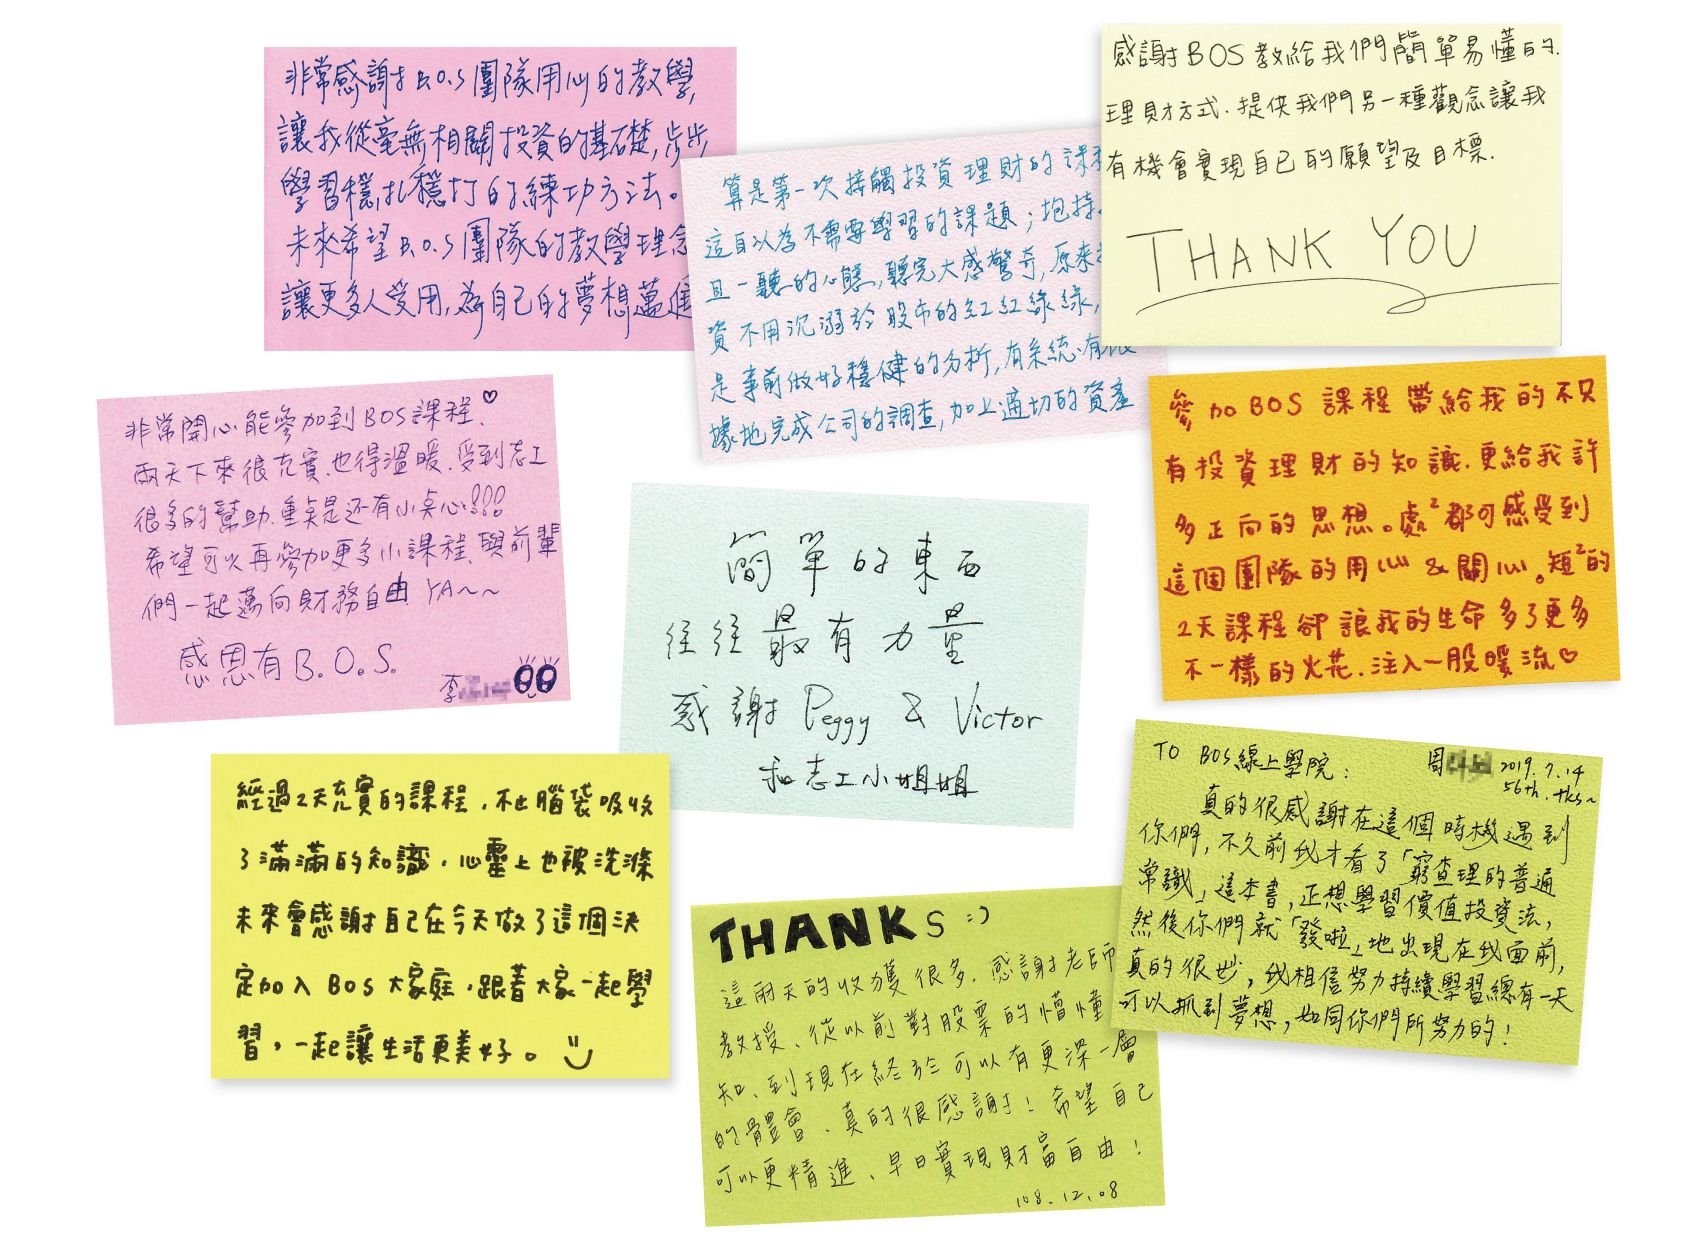 非常感謝B.O.S團隊用心的教學,
讓我從毫無相關投資的基礎,步步
學習穩扎穩打的練功方法。
未來希望B.O.S團隊的教學理念
讓更多人受用,為自己的夢想邁進
算是第一次接觸投資理財的課程
這自以為不需要學習的課題;抱持
且一聽的心態,聽完大感驚奇,原來投
資不用沉溺於股市的紅紅綠綠,
是事前做好穩健的分析,有系統.有根
據地完成公司的調查,加上適切的資產
感謝BOS教給我們簡單易懂的.
理財方式.提供我們另一種觀念讓我
有機會實現自己的願望及目標.
THANK YOU
非常開心能參加到BOS課程.♡
兩天下來很充實.也得溫暖.受到志工
很多的幫助.重點是还有小点心!!!
希望可以再參加更多小課程、與前輩
們一起邁向財務自由 YA~~
感恩有B.O.S.
李
簡單的東西
往往最有力量
感謝 Peggy & Victor
和志工小姐姐
參加BOS課程帶給我的不只
有投資理財的知識.更給我許
多正向的思想。處²都可感受到
這個團隊的用心&關心。短²的
2天課程卻讓我的生命多了更多
不一樣的火花.注入一股暖流♡
經過2天充實的課程,不止腦袋吸收
了滿滿的知識,心靈上也被洗滌
未來會感謝自己在今天做了這個決
定加入BOS大家庭,跟著大家一起學
習,一起讓生活更美好。
THANKS :)
這兩天的收獲很多.感謝老師
教授、從以前對股票的懵懂
知、到現在終於可以有更深一層
的體會、真的很感謝!希望自己
可以更精進、早日實現財富自由!
108.12.08
TO BOS線上學院:
周 2019.7.14
56th. tks~
真的很感謝在這個時機遇到
你們,不久前我才看了「窮查理的普通
常識」這本書,正想學習價值投資法,
然後你們就「發啦」地出現在我面前,
真的很妙,我相信努力持續學習總有一天
可以抓到夢想,如同你們所努力的!